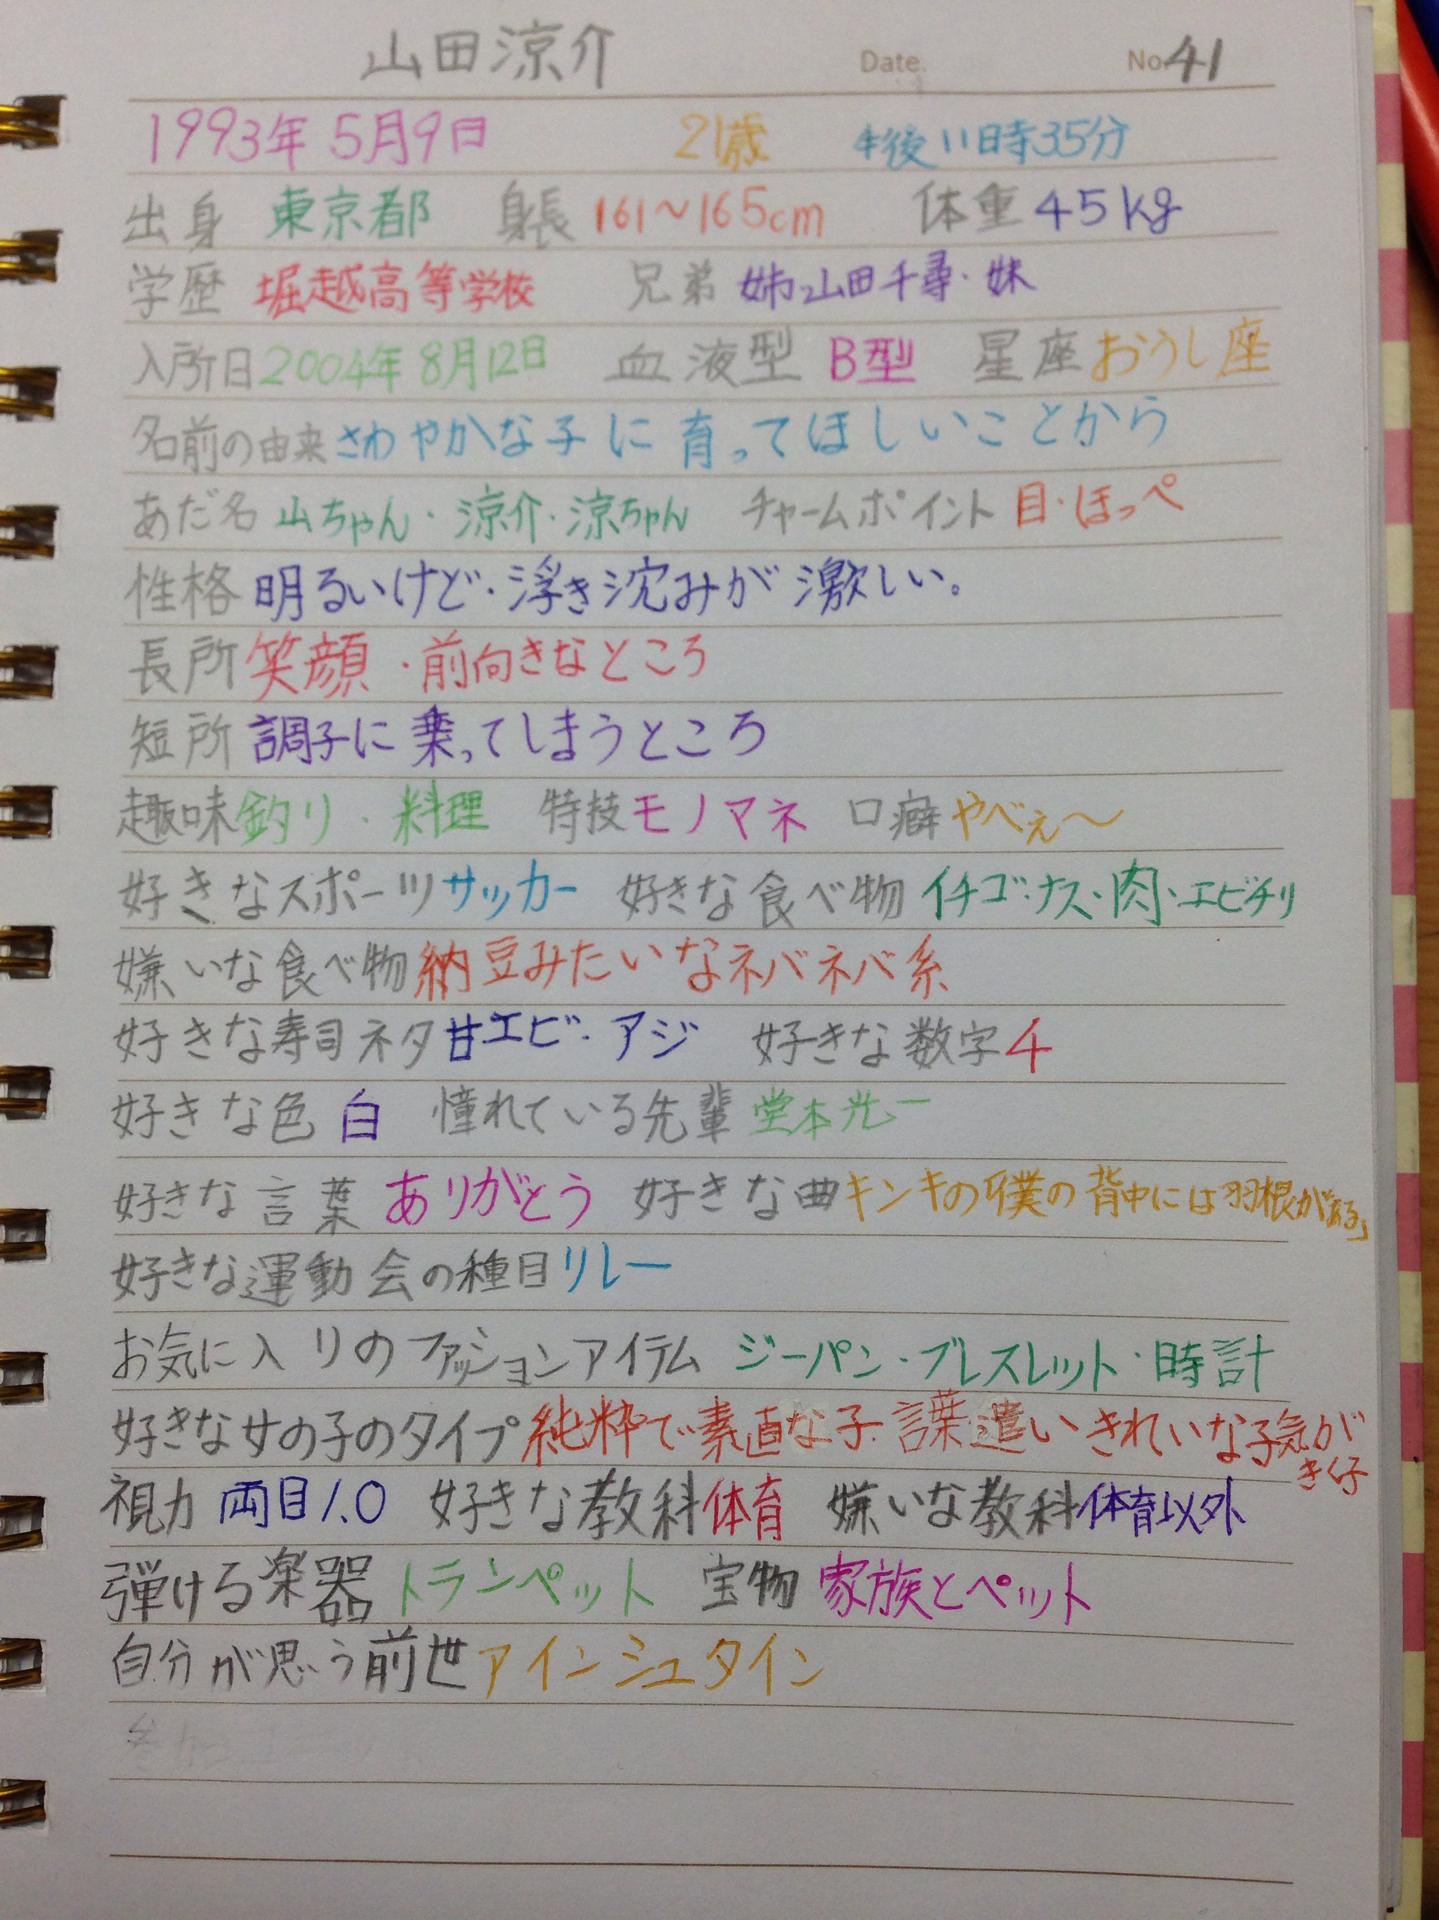 山田涼介 Date. No.41
1993年5月9日 21歳 午後11時35分
出身 東京都 身長 161〜165cm 体重 45kg
学歴 堀越高等学校 兄弟 姉→山田千尋・妹
入所日 2004年8月12日 血液型 B型 星座 おうし座
名前の由来 さわやかな子に育ってほしいことから
あだ名 山ちゃん・涼介・涼ちゃん チャームポイント 目・ほっぺ
性格 明るいけど・浮き沈みが激しい。
長所 笑顔・前向きなところ
短所 調子に乗ってしまうところ
趣味 釣り・料理 特技 モノマネ 口癖 やべぇ〜
好きなスポーツ サッカー 好きな食べ物 イチゴ・ナス・肉・エビチリ
嫌いな食べ物 納豆みたいなネバネバ系
好きな寿司ネタ 甘エビ・アジ 好きな数字 4
好きな色 白 憧れている先輩 堂本光一
好きな言葉 ありがとう 好きな曲 キンキの「僕の背中には羽根がある」
好きな運動会の種目 リレー
お気に入りのファッションアイテム ジーパン・ブレスレット・時計
好きな女の子のタイプ 純粋で素直な子・言葉遣いきれいな子気がきく子
視力 両目1.0 好きな教科 体育 嫌いな教科 体育以外
弾ける楽器 トランペット 宝物 家族とペット
自分が思う前世 アインシュタイン